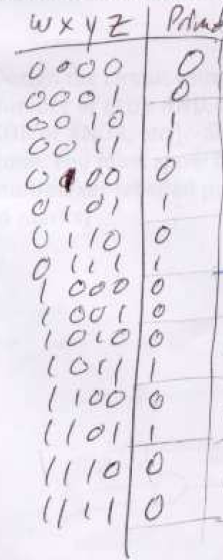 w x y z Prime
0000 0
0001 0
0010 1
0011 1
0100 0
0101 1
0110 0
0111 1
1000 0
1001 0
1010 0
1011 1
1100 0
1101 1
1110 0
1111 0